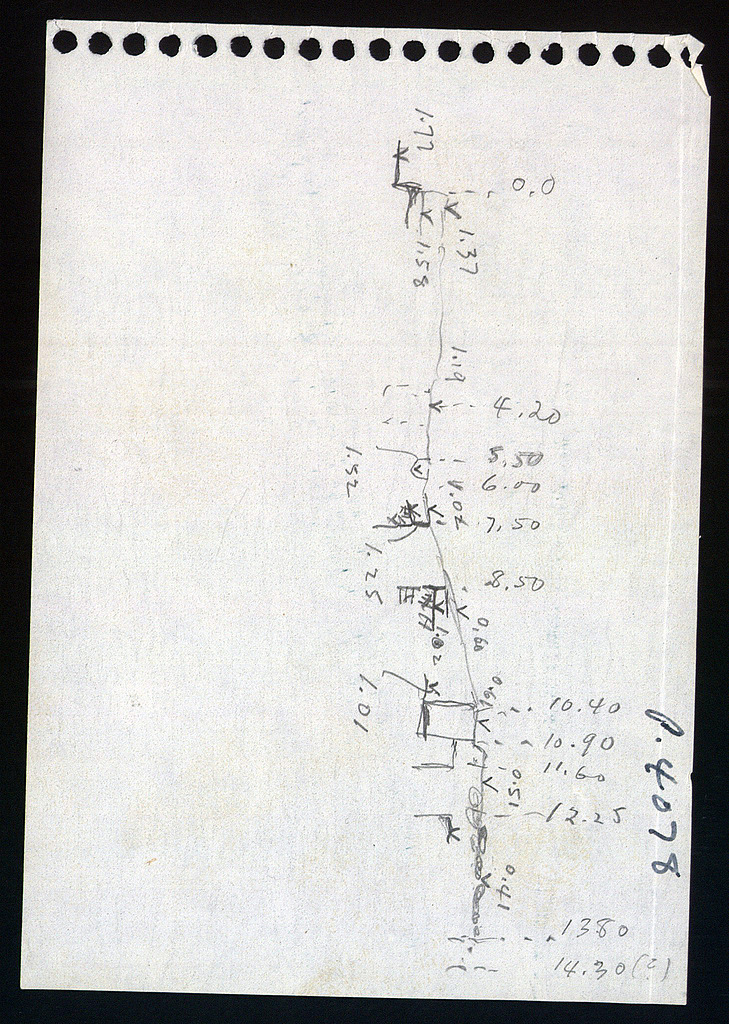 1.77
0.0
1.37
1.58
1.19
4.20
5.50
1.52
6.00
1.02
7.50
1.25
8.50
0.60
1.02
1.01
10.40
P.4078
10.90
11.60
0.51
12.25
0.41
13.80
14.30(?)